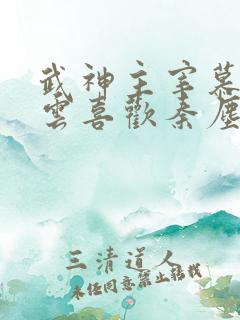 武神主宰慕
雲喜歡秦塵
三清道人
未经同意禁止转载